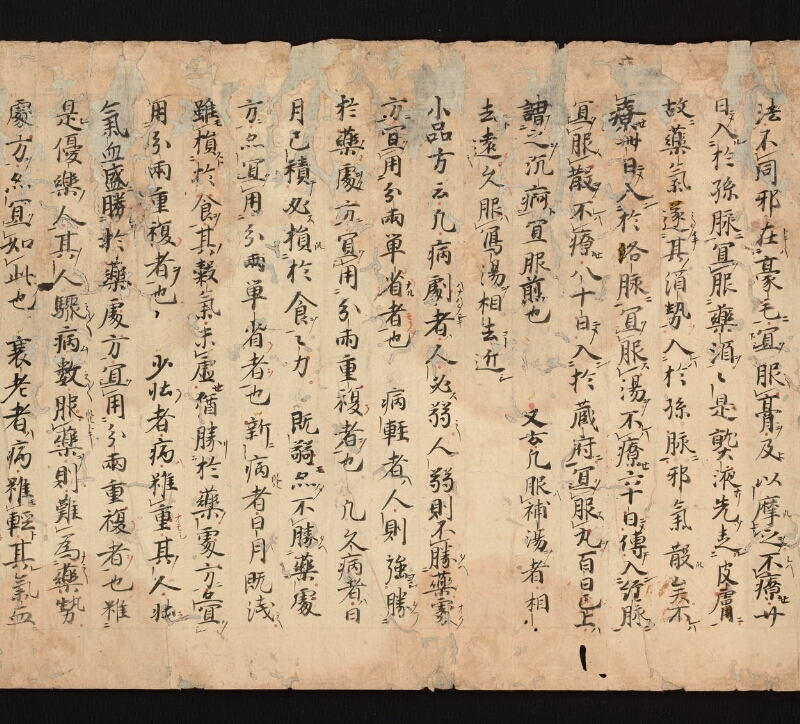 法不同邪在豪毛宜服膏及以摩之不療廿
日入於孫脉宜服藥酒〻是熟液先走皮膚
故藥氣遂其酒勢入於孫脉邪氣散矣不
療卌日入於絡脉宜服湯不療六十日傳入經脉
宜服散不療八十日入於蔵府宜服丸百日已上
謂之沉痾宜服煎也 又云凡服補湯者相
去遠久服瀉湯相去近
小品方云凡病劇者人必弱人弱則不勝藥處
方宜用分兩單省者也 病輕者人則強勝
於藥處方宜用分兩重複者也 凡久病者日
月已積必損於食〻力既弱亦不勝藥處
方亦宜用分兩單省者也新病者日月既淺
雖損於食其穀氣未虛猶勝於藥處方宜
用分兩重複者也 少壯者病雖重其人壯
氣血盛勝於藥處方宜用分兩重複者也雖
是優樂人其人驟病數服藥則難為藥勢
處方亦宜如此也 衰老者病雖輕其氣血